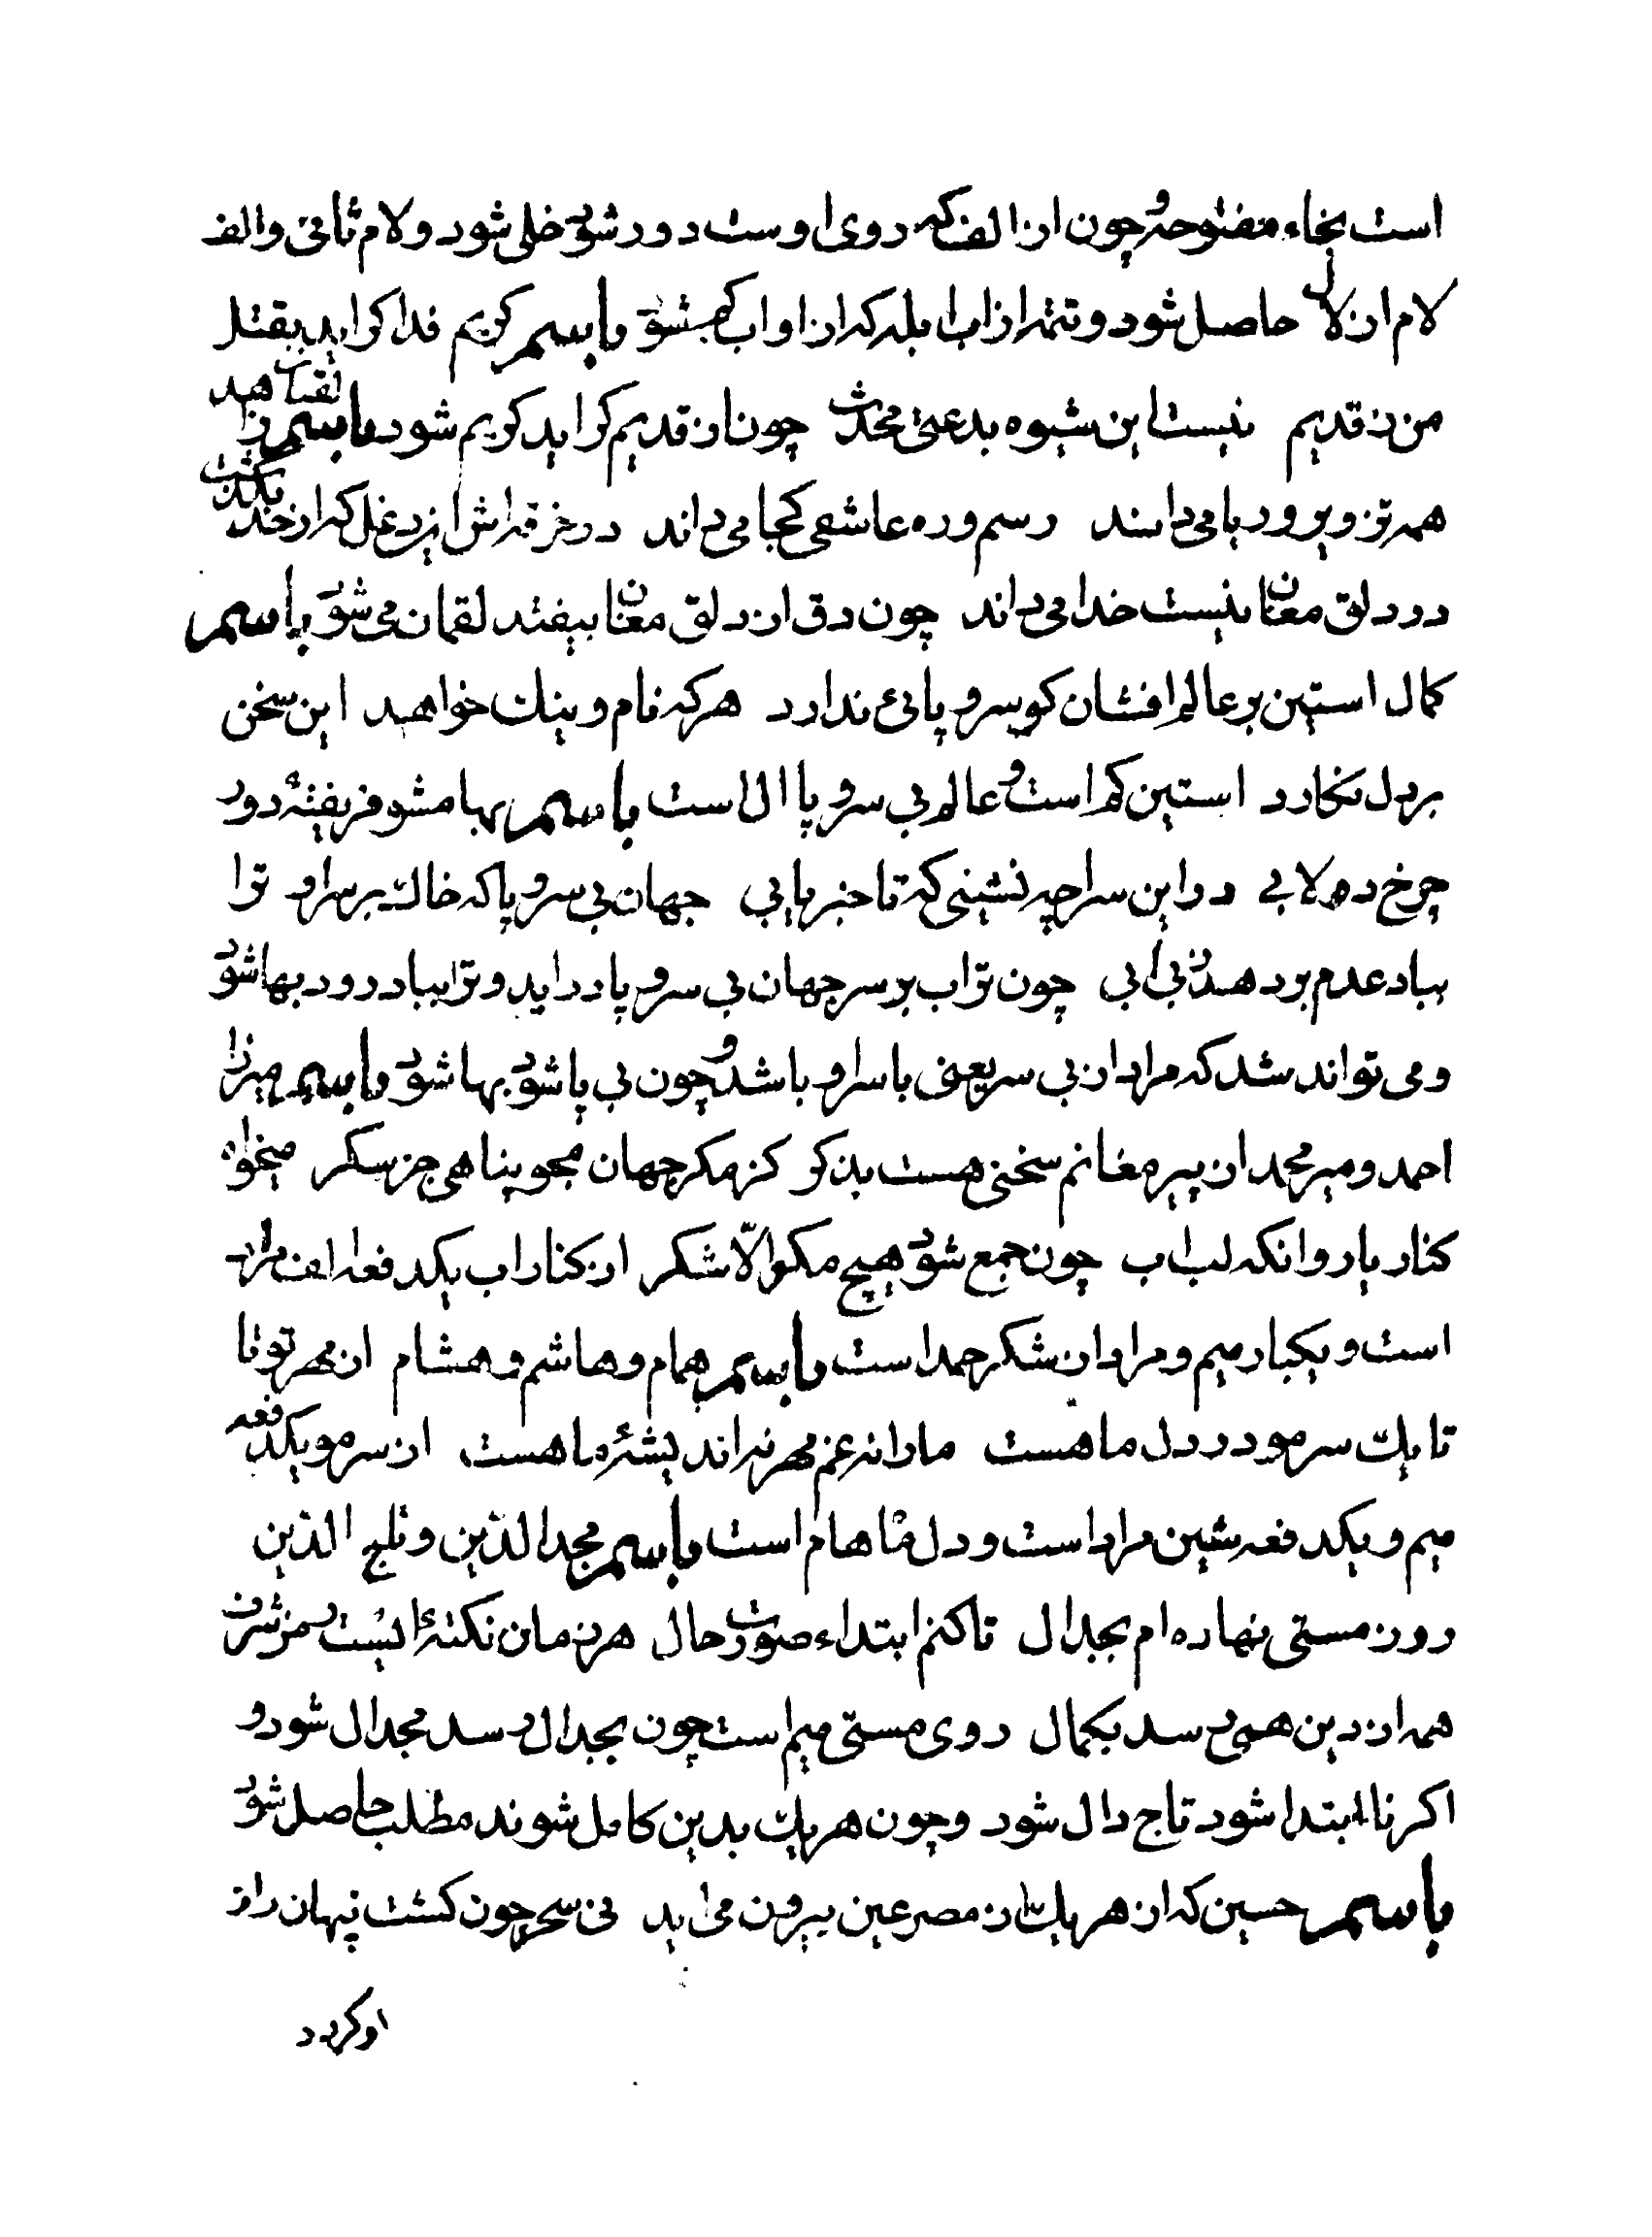 است بخاء مفتوحه و چون از الف که روی اوست دور شود خلی شود و لام ثانی و الف
لام از لال حاصل شود و تتمه از اب ابله که از او اب کم شود باسم کریم فدا کر اید بقتل
من ز قدیم نیست این شیوه بدعتی محدث چون از قدیم کر اید کریم شود باسم لقمان زاهد
همه تزویر و ریا می داند رسم و ره عاشقی کجا می داند در خرقه اش از دغل که از حد بگذشت
در دلق مغان نیست خدا می داند چون دق از دلق مغان بیفتد لقمان می شود باسم
کمال استین بر عالم افشان کو سر و پائی ندارد هر که نام و ننک خواهد این سخن
بر دل نکارد استین کم است و عالم بی سر و پا ال است باسم بها مشو فریفتهٔ دور
چرخ دولابی در این سراچه نشینی که تا خبر یابی جهان بی سر و پا که خاک بر سر او ترا
بباد عدم بر دهد ز بی ابی چون تراب بر سر جهان بی سر و پا در اید و ترا بباد رود بها شود
و می تواند شد که مراد از بی سر یعنی با سر او باشد و چون بی پا شود بها شود باسم میرزا
احمد و میر محمد از پیر مغانم سخنی هست بذکر کز مکر جهان مجو پناهی جز سکر میخواه
کنار یار وانکه لب اب چون جمع شود هیچ مکو الّا شکر از کنار اب یکدفعه الف مراد
است و یکبار میم و مراد از شکر حمد است باسم همام و هاشم و هشام از مهر تو تا
تا یک سر مو در دل ما هست ما را نه غم مهر نه اندیشهٔ ما هست از سر مو یکدفعه
میم و یکدفعه شین مراد است و دل ما هام است باسم مجد الدّین و تاج الدّین
روز مستی نهاده ام بجدال تا کنم ابتداء صورت حال هر زمان نکته ائیست
همه از دین همی رسد بکمال روی مستی میم است چون بجدال رسد مجدال شود و
اکر تا ابتدا شود تاج دال شود و چون هر یک بدین کامل شوند مطلب حاصل شود
باسم حسین که از هر یک از مصرعین بیرون می اید نی سحر چون کشت پنهان راز
او کردد